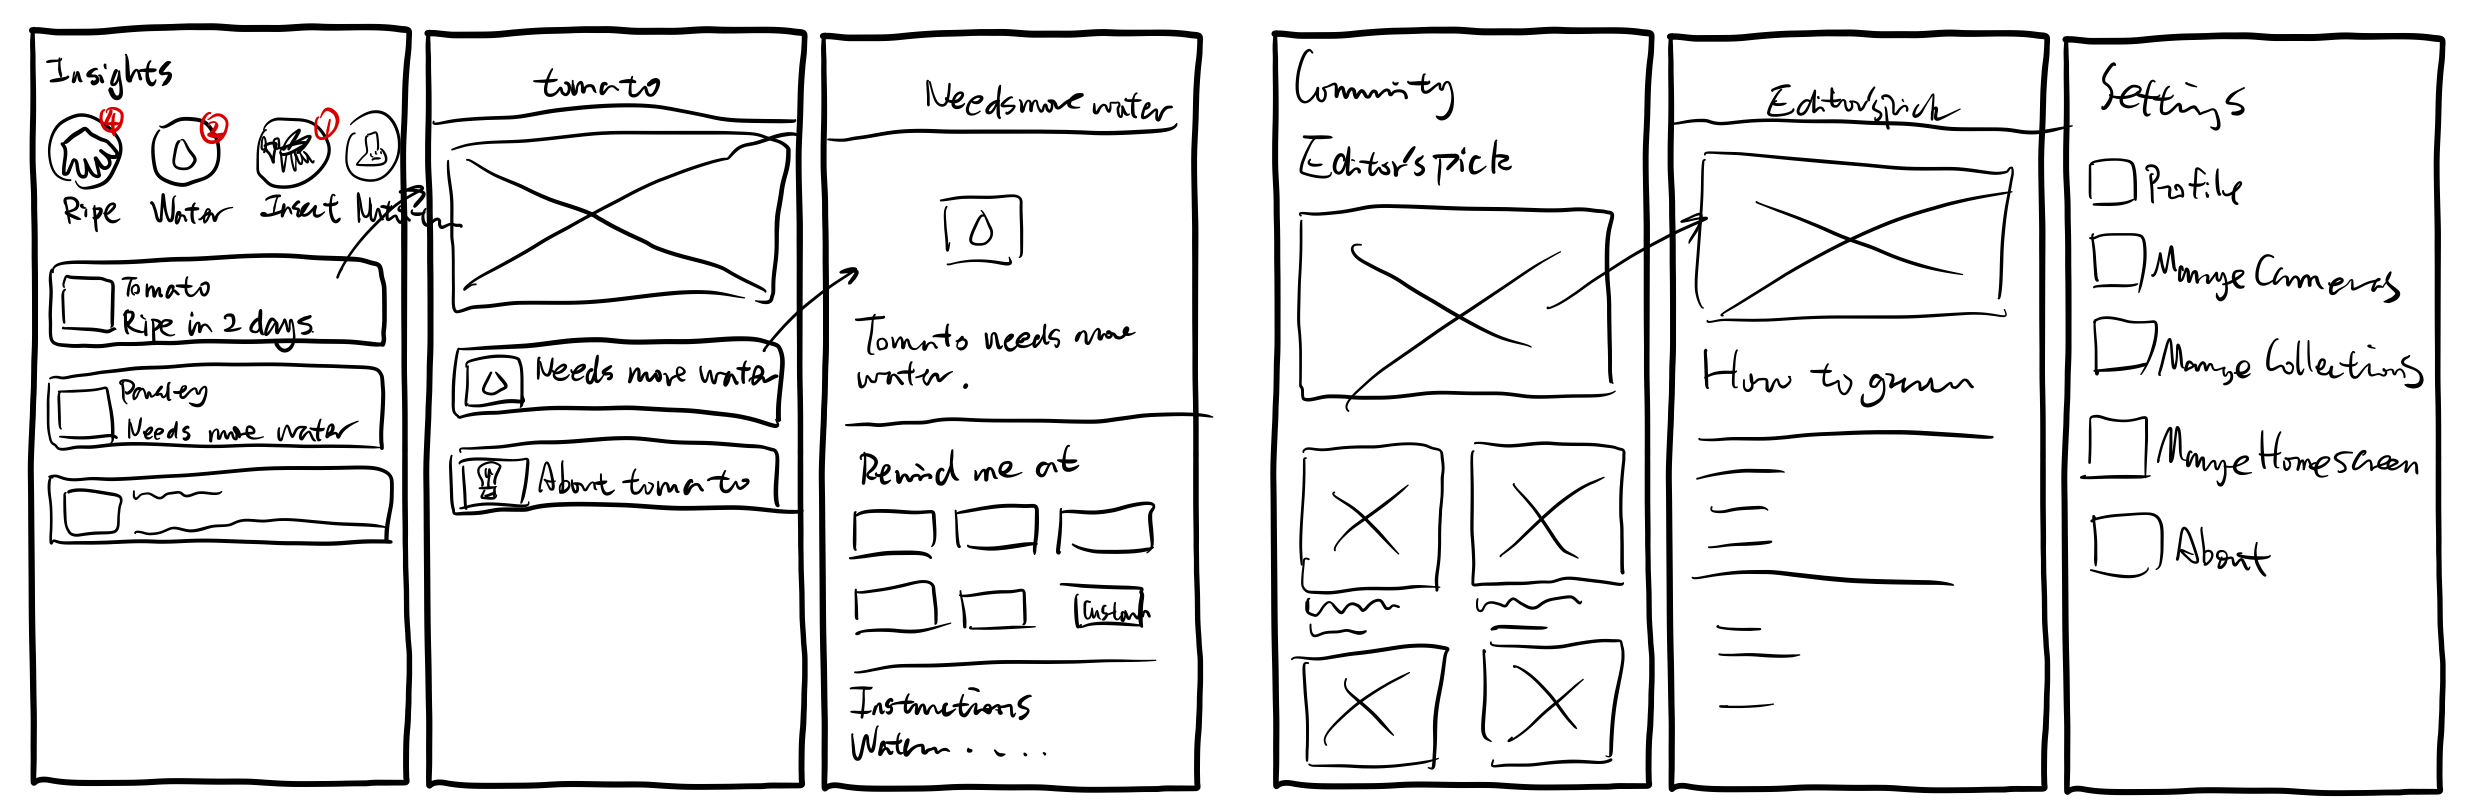 Insights
4 2 1
Ripe Water Insect
Tomato
Ripe in 2 days
Needs more water
tomato
Needs more water
About tomato
Needs more water
Tomato needs more
water.
Remind me at
Custom
Instructions
Water.....
Commity
Editor's pick
Editor's pick
How to
Settings
Profile
Manage Cameras
Manage Collections
Manage Homescreen
About